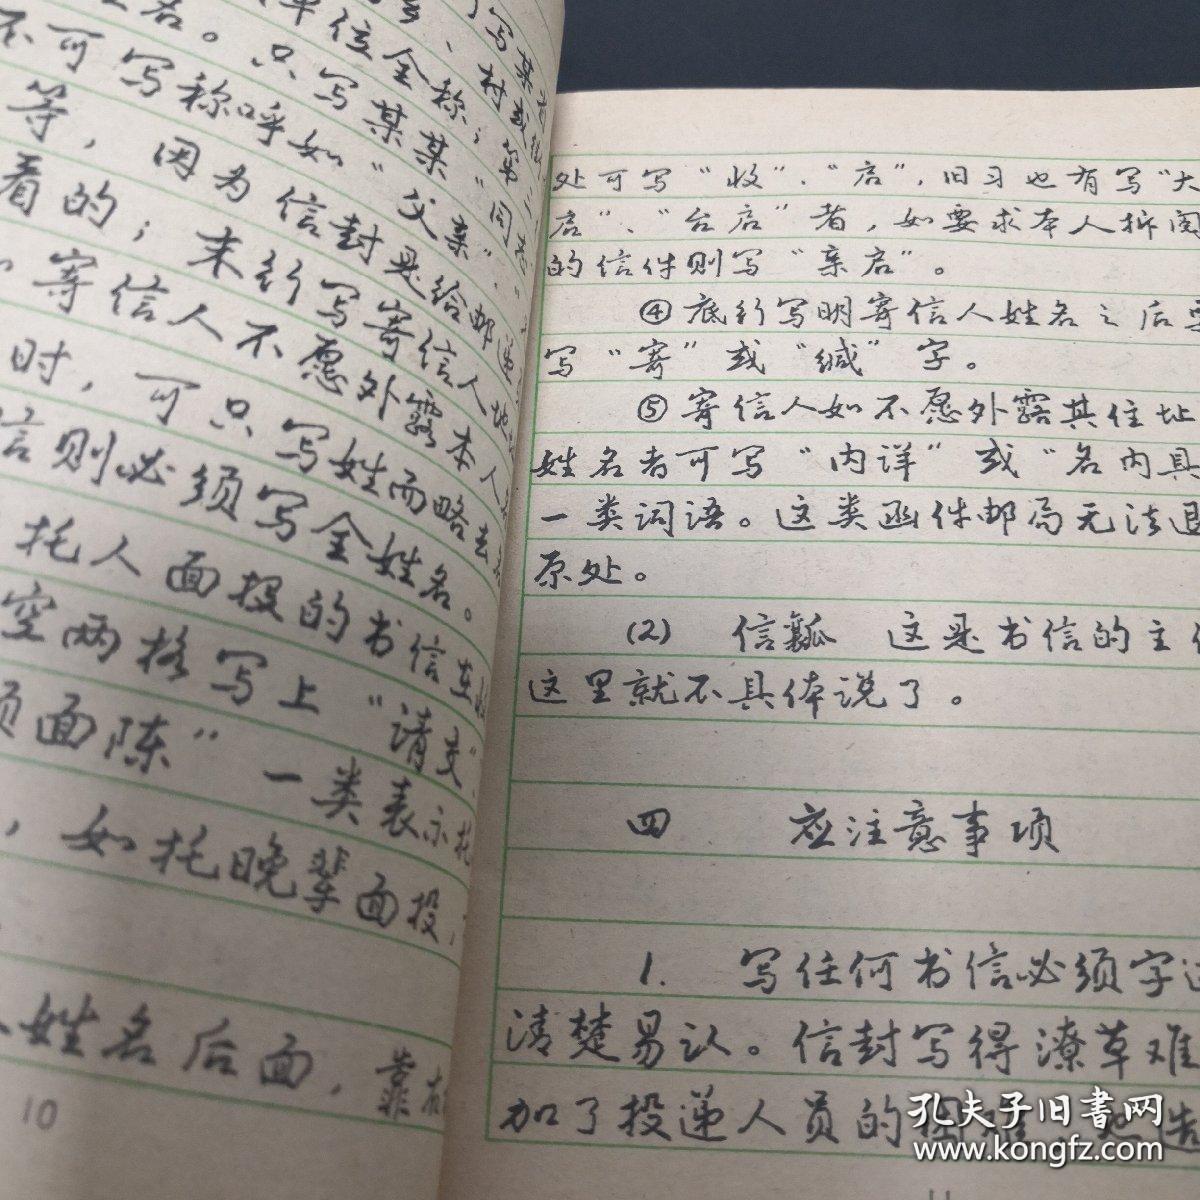 写某
单位全称；第
名。只写某某“同志
不可写称呼如“父亲”
等，因为信封是给邮递
看的；末行写寄信人地
寄信人不愿外露本人
时，可只写姓而略去
信则必须写全姓名。
托人面投的书信在
空两格写上“请交”
面陈”一类表示托
，如托晚辈面投，
姓名后面，靠右
10
处可写“收”、“启”，旧习也有写“大
启”、“台启”者，如要求本人拆阅
的信件则写“亲启”。
④底行写明寄信人姓名之后要
写“寄”或“缄”字。
⑤寄信人如不愿外露其住址
姓名者可写“内详”或“名内具”
一类词语。这类函件邮局无法退
原处。
(2) 信瓤 这是书信的主
这里就不具体说了。
四 应注意事项
1. 写任何书信必须字迹
清楚易认。信封写得潦草难
加了投递人员的困难，也造
11
孔夫子旧书网
www.kongfz.com